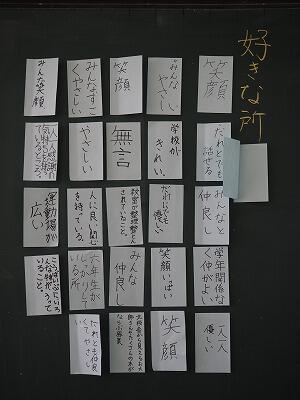 好きな所
笑顔
みんな
やさしい
笑顔
みんなすご
くやさしい
みんな笑顔
だれとでも
話せる
学校が
きれい。
無言
やさしい
みんなと
仲良し
だれにでも
優しい
教室が整理整とん
されている。
人に良い関心
を持っている。
運動場が
広い
学年関係な
く仲がよい
笑顔いっぱい
みんな
仲良し
六年生が
しっかりして
いる所
一人一人
優しい
笑顔
だれとも仲良
くてやさし
い